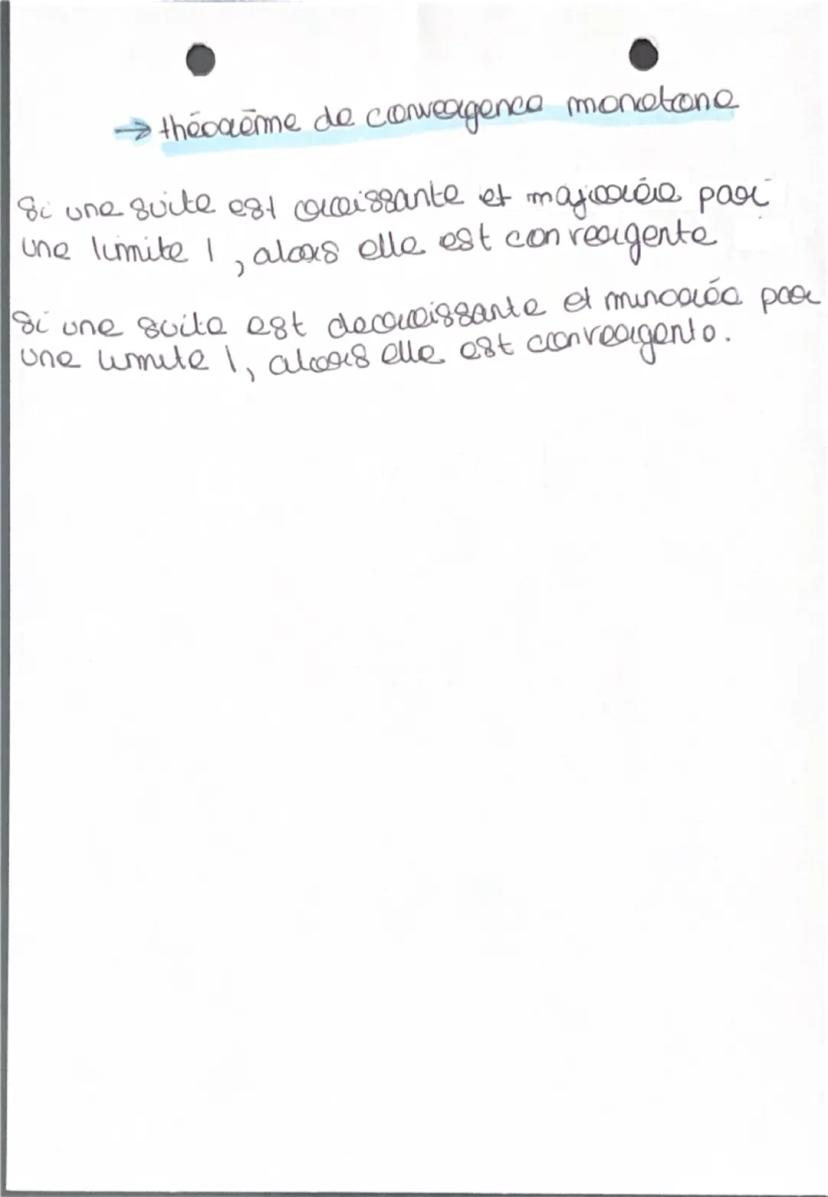 → théorème de convergence monotone
Si une suite est croissante et majorée par
une limite l, alors elle est convergente
Si une suite est decroissante et minorée par
une limite l, alors elle est convergente.